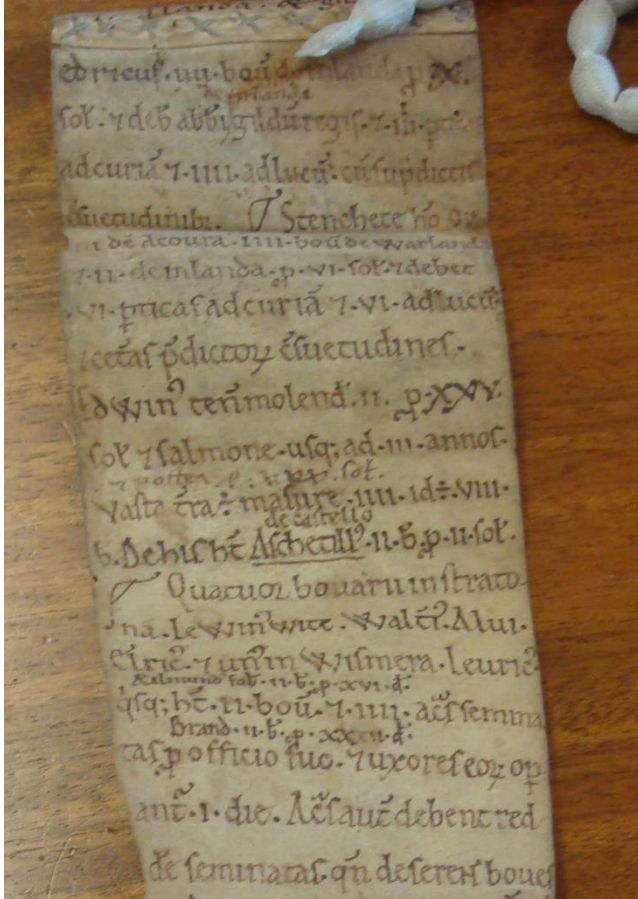 edricus .iiii. bou de inlanda p X.
de Inlanda
sol. ⁊ deb abbi gildū regis. ⁊ .iii. pticas
ad curiā ⁊ .IIII. ad lucū. cū sup dictis
c̄suetudinib;. Stenchete hō
ni de Acoura .IIII. bou de warland
⁊ .II. de inlanda. p .VI. sol. ⁊ debet
.VI. pticas ad curiā ⁊ .VI. ad lucū
⁊ cetas p̄dictoꝝ c̄suetudines.
Edwin⁹ ten̄ molend. II. p. XXV.
sol ⁊ salmone. usq; ad .III. annos.
⁊ postea p. XXV. sol.
Vasta t̄ra: masure .IIII. id÷ .VIII.
de castello
b. De his ht̄ Aschetill⁹ .II. b. p. II. sol.
Quatuor bouarii in strato
na. Lewin⁹ wite. Walt̄. Alui.
Elric⁹. ⁊ un⁹ in Wismera. Leuric⁹
Ailmund fab. II. b. p. XVI. d.
qsq; ht̄ .II. bou. ⁊ .IIII. ac̄s semina
Brand. II. b. p. XXXII. d.
tas p officio suo. ⁊ uxores eoꝝ op
ant̄ .I. die. Ac̄s aut̄ debent red
de seminatas. qn̄ deserent boues